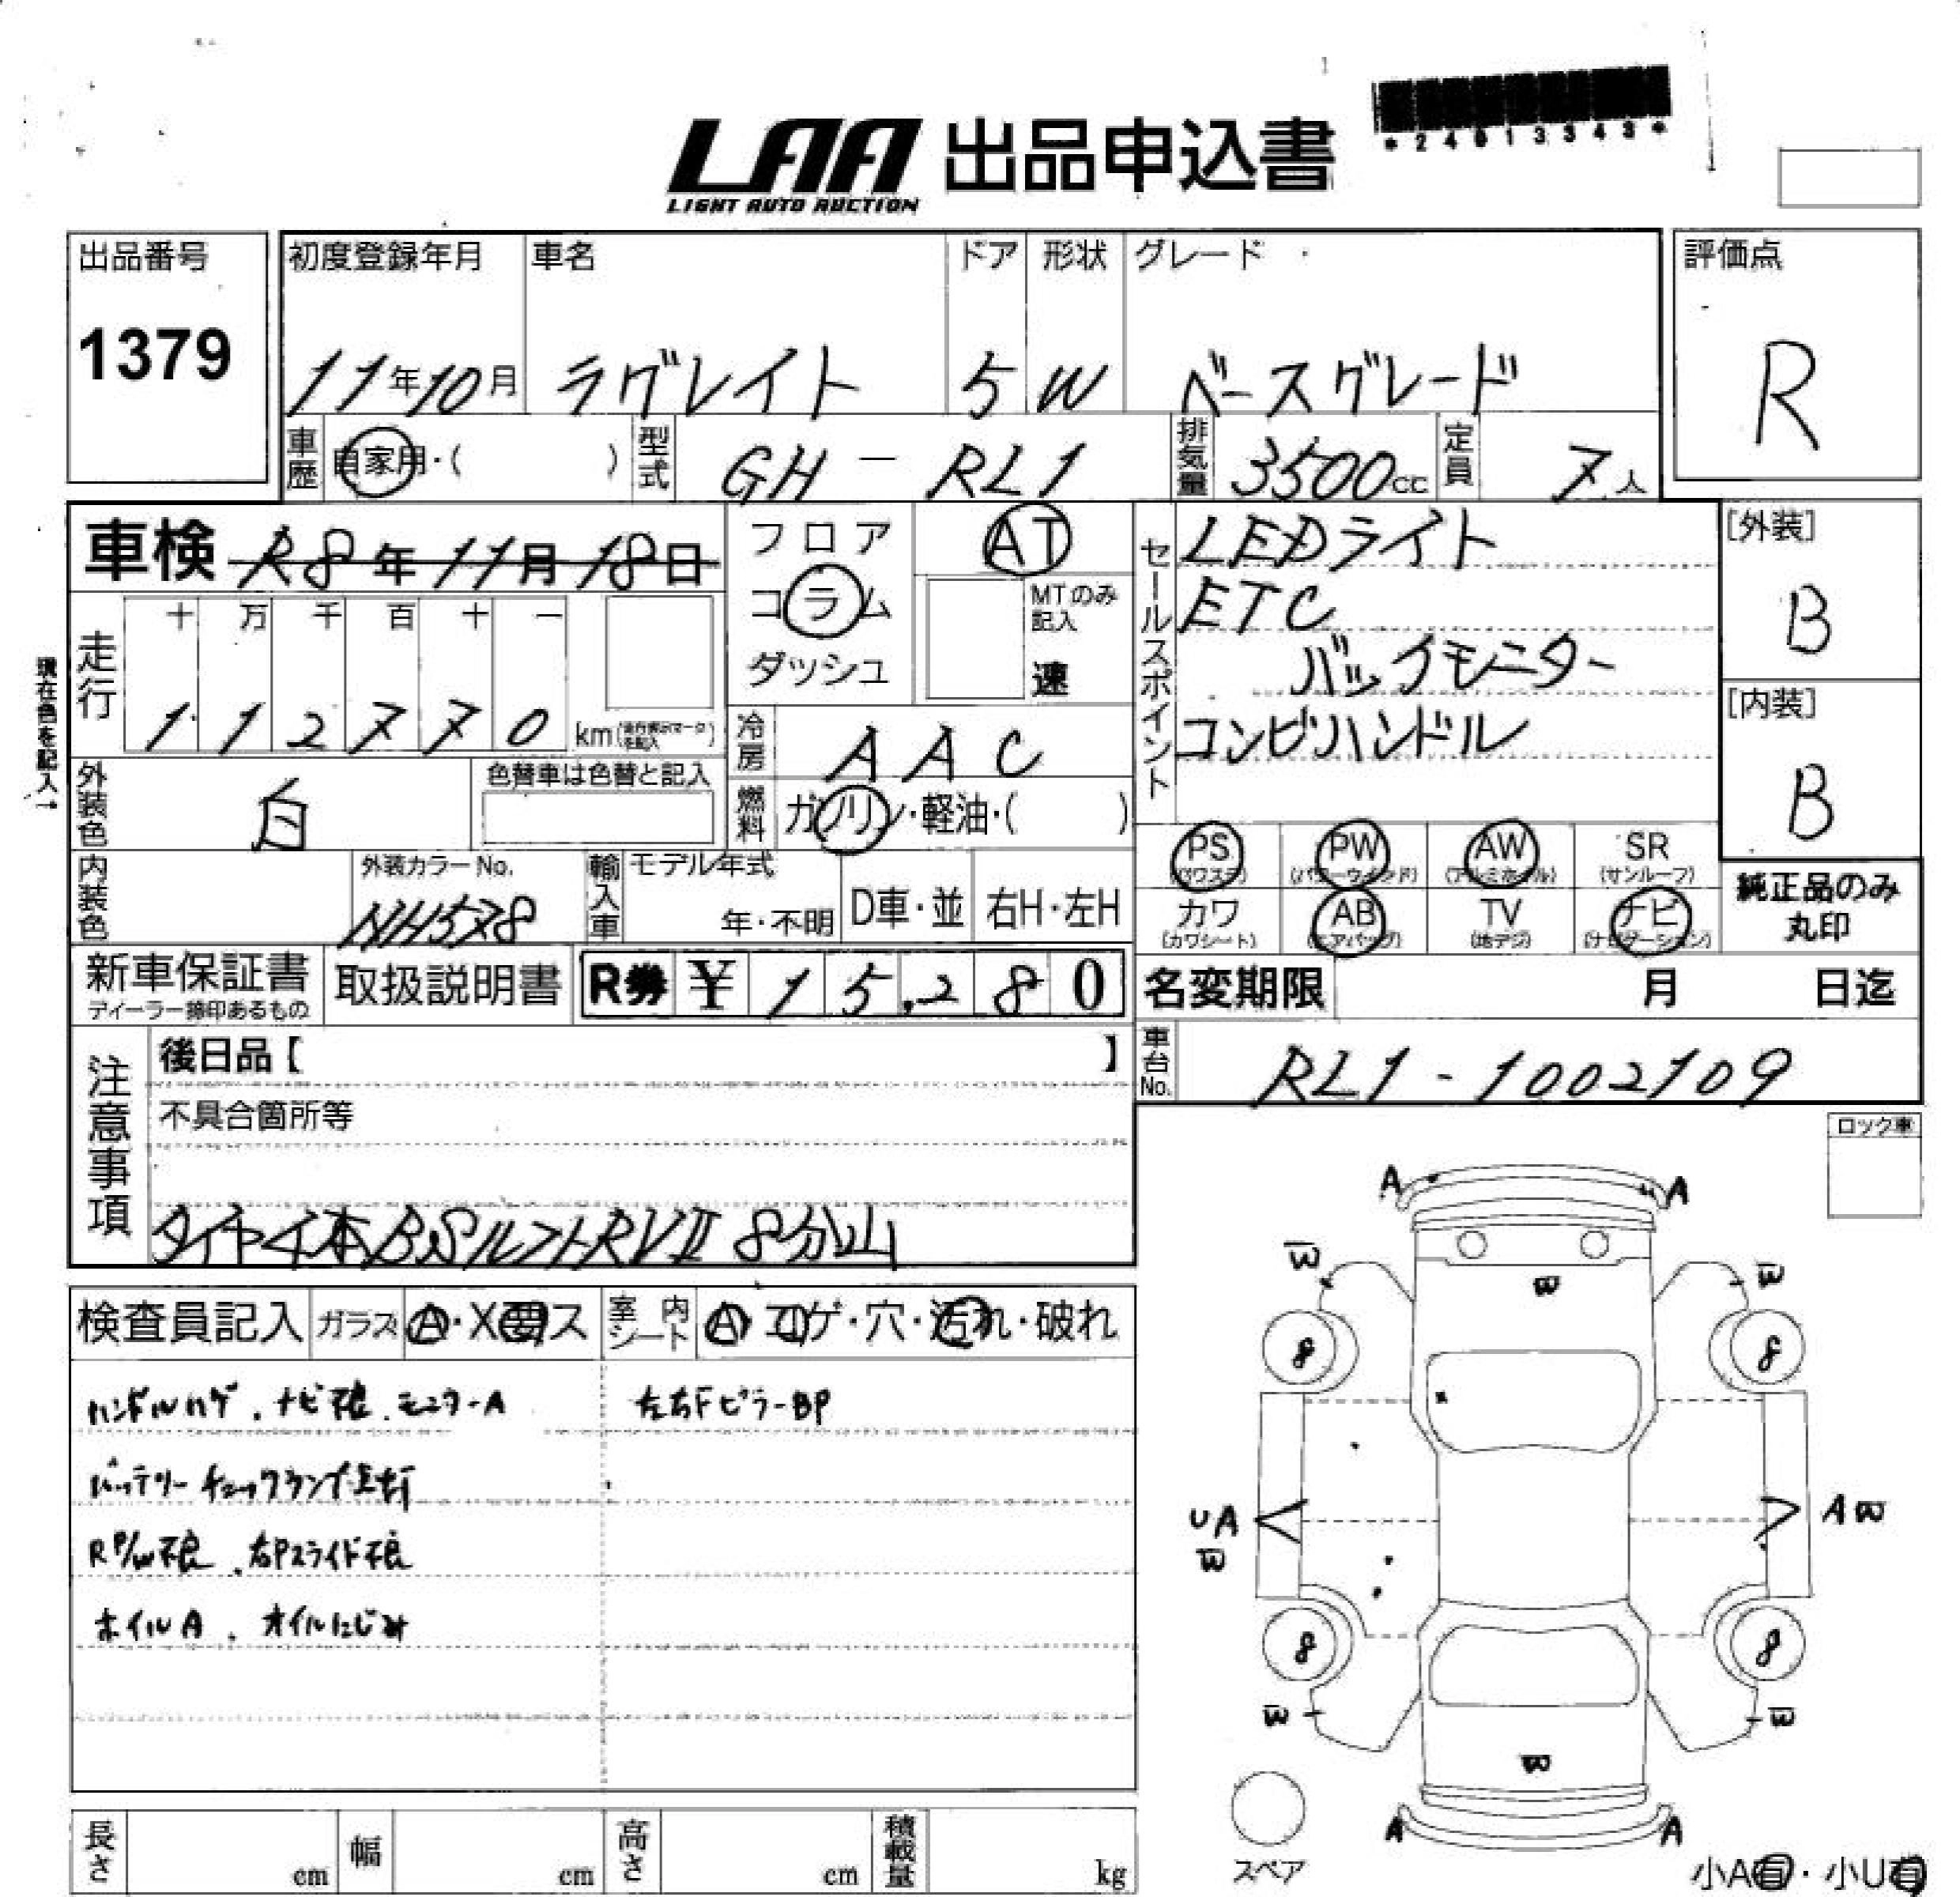 LAA 出品申込書
LIGHT AUTO AUCTION
*24013343*
出品番号
1379
初度登録年月 車名 ドア 形状 グレード
11年10月 ラグレイト 5 W ベースグレード
評価点
R
車歴 自家用・( ) 型式 GH-RL1 排気量 3500cc 定員 7人
車検 R8年11月18日
フロア
コラム
ダッシュ
AT
MTのみ記入
速
セールスポイント
LEDライト
ETC
バックモニター
コンビハンドル
[外装]
B
[内装]
B
現在色を記入→
走行 十 万 千 百 十 一
1 1 2 7 7 0 km
冷房 AAC
外装色 白 色替車は色替と記入
燃料 ガソリン・軽油・( )
PS (パワステ) PW (パワーウインド) AW (アルミホイル) SR (サンルーフ)
カワ (カワシート) AB (エアバッグ) TV (地デジ) ナビ (ナビゲーション)
純正品のみ
丸印
内装色 外装カラーNo. NH578 輸入車 モデル年式 年・不明 D車・並 右H・左H
新車保証書 ディーラー捺印あるもの 取扱説明書 R券 ¥ 15,280
名変期限 月 日迄
車台No. RL1-1002109
注意事項
後日品【 】
不具合箇所等
タイヤ4本BSルフトRVII 8分山
ロック車
検査員記入 ガラス A・X要ス 室内シート A・コゲ・穴・汚れ・破れ
ハンドルハゲ、ナビ不良、モニターA 左右FピラーBP
バッテリーチェックランプ点灯
R P/W不良、右Pスライド不良
ホイルA、オイルにじみ
A A
W W
W
8 8
UA
W
A W
8 8
W W
W
A A
スペア
小A有・小U有
長さ cm 幅 cm 高さ cm 積載量 kg